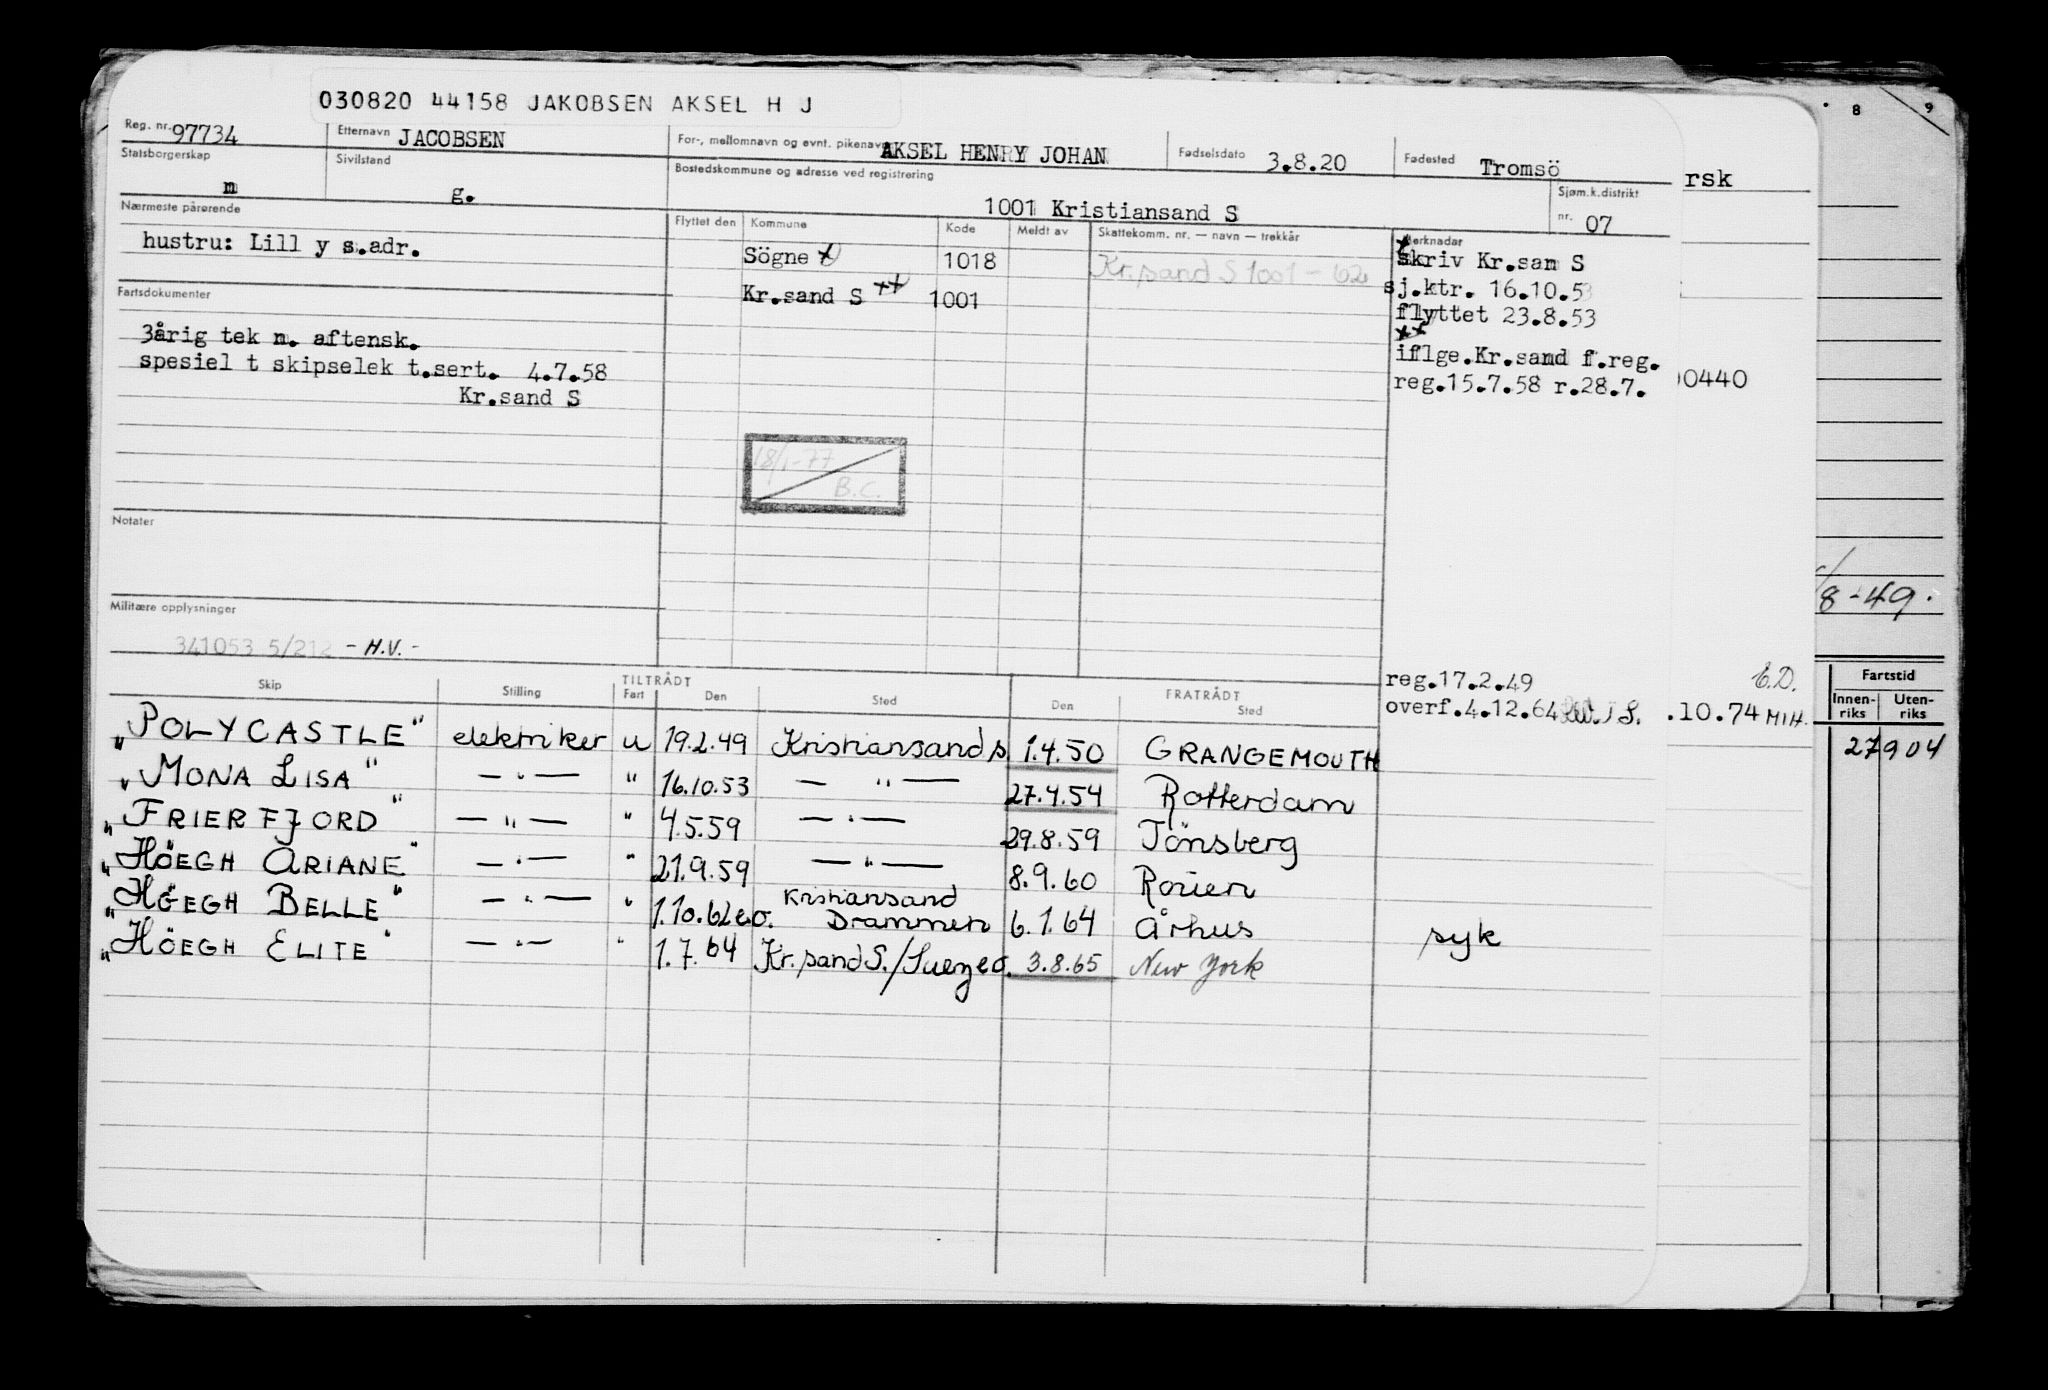 030820 44158 JAKOBSEN AKSEL H J
Reg. nr. 97734 Etternavn JACOBSEN For-, mellomnavn og evnt. pikenavn AKSEL HENRY JOHAN Fødselsdato 3.8.20 Fødested Tromsö
Statsborgerskap n Sivilstand g. Bostedskommune og adresse ved registrering 1001 Kristiansand S Sjøm.k.distrikt nr. 07
Nærmeste pårørende Flyttet den Kommune Kode Meldt av Skattekomm. nr. — navn — trekkår Merknader
hustru: Lill y s.adr. Sögne x 1018 Kr.sand S 1001 - 62 x skriv Kr.san S
Kr.sand S xx 1001 sj.ktr. 16.10.53
Fartsdokumenter flyttet 23.8.53
3årig tek n. aftensk. xx iflge.Kr.sand f.reg.
spesiel t skipselek t.sert. 4.7.58 reg.15.7.58 r.28.7.
Kr.sand S
18/1-77
B.C.
Notater
Militære opplysninger
341053 5/212 - H.V. -
reg.17.2.49
overf.4.12.64
Skip Stilling TILTRÅDT Fart Den Sted FRATRÅDT Den Sted
"POLYCASTLE" elektriker u 19.2.49 Kristiansand s. 1.4.50 GRANGEMOUTH
"MONA LISA" — " — " 16.10.53 — " — 27.4.54 Rotterdam
"FRIERFJORD" — " — " 4.5.59 — " — 29.8.59 Tönsberg
"HÖEGH ARIANE" — " — " 21.9.59 — " — 8.9.60 Rouen
"HÖEGH BELLE" — " — " 1.10.62 e.o. Kristiansand Drammen 6.1.64 Århus syk
"HÖEGH ELITE" — " — " 1.7.64 Kr.sand S./Suez e.o. 3.8.65 New York
rsk
0440
E.D.
.10.74 MIH.
8 9
/8-49.
Fartstid
Innen-riks Uten-riks
27904